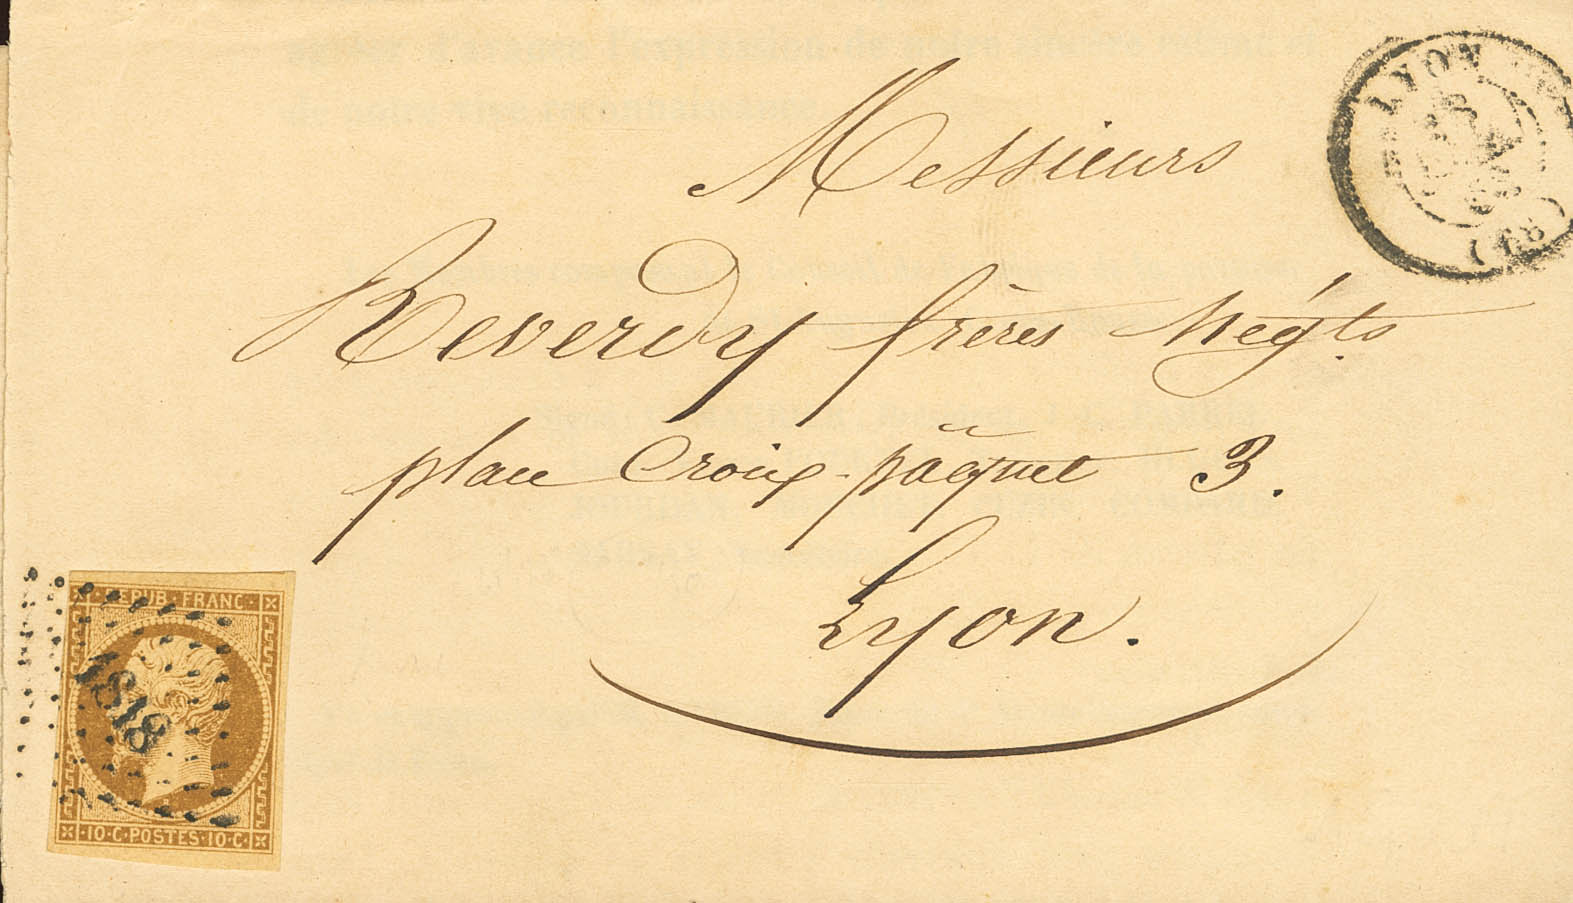 Messieurs
Reverdy frères Négts
place Croix-pâquet 3.
Lyon.
LYON
(68)
REPUB. FRANC.
1818
10.C.POSTES.10.C.